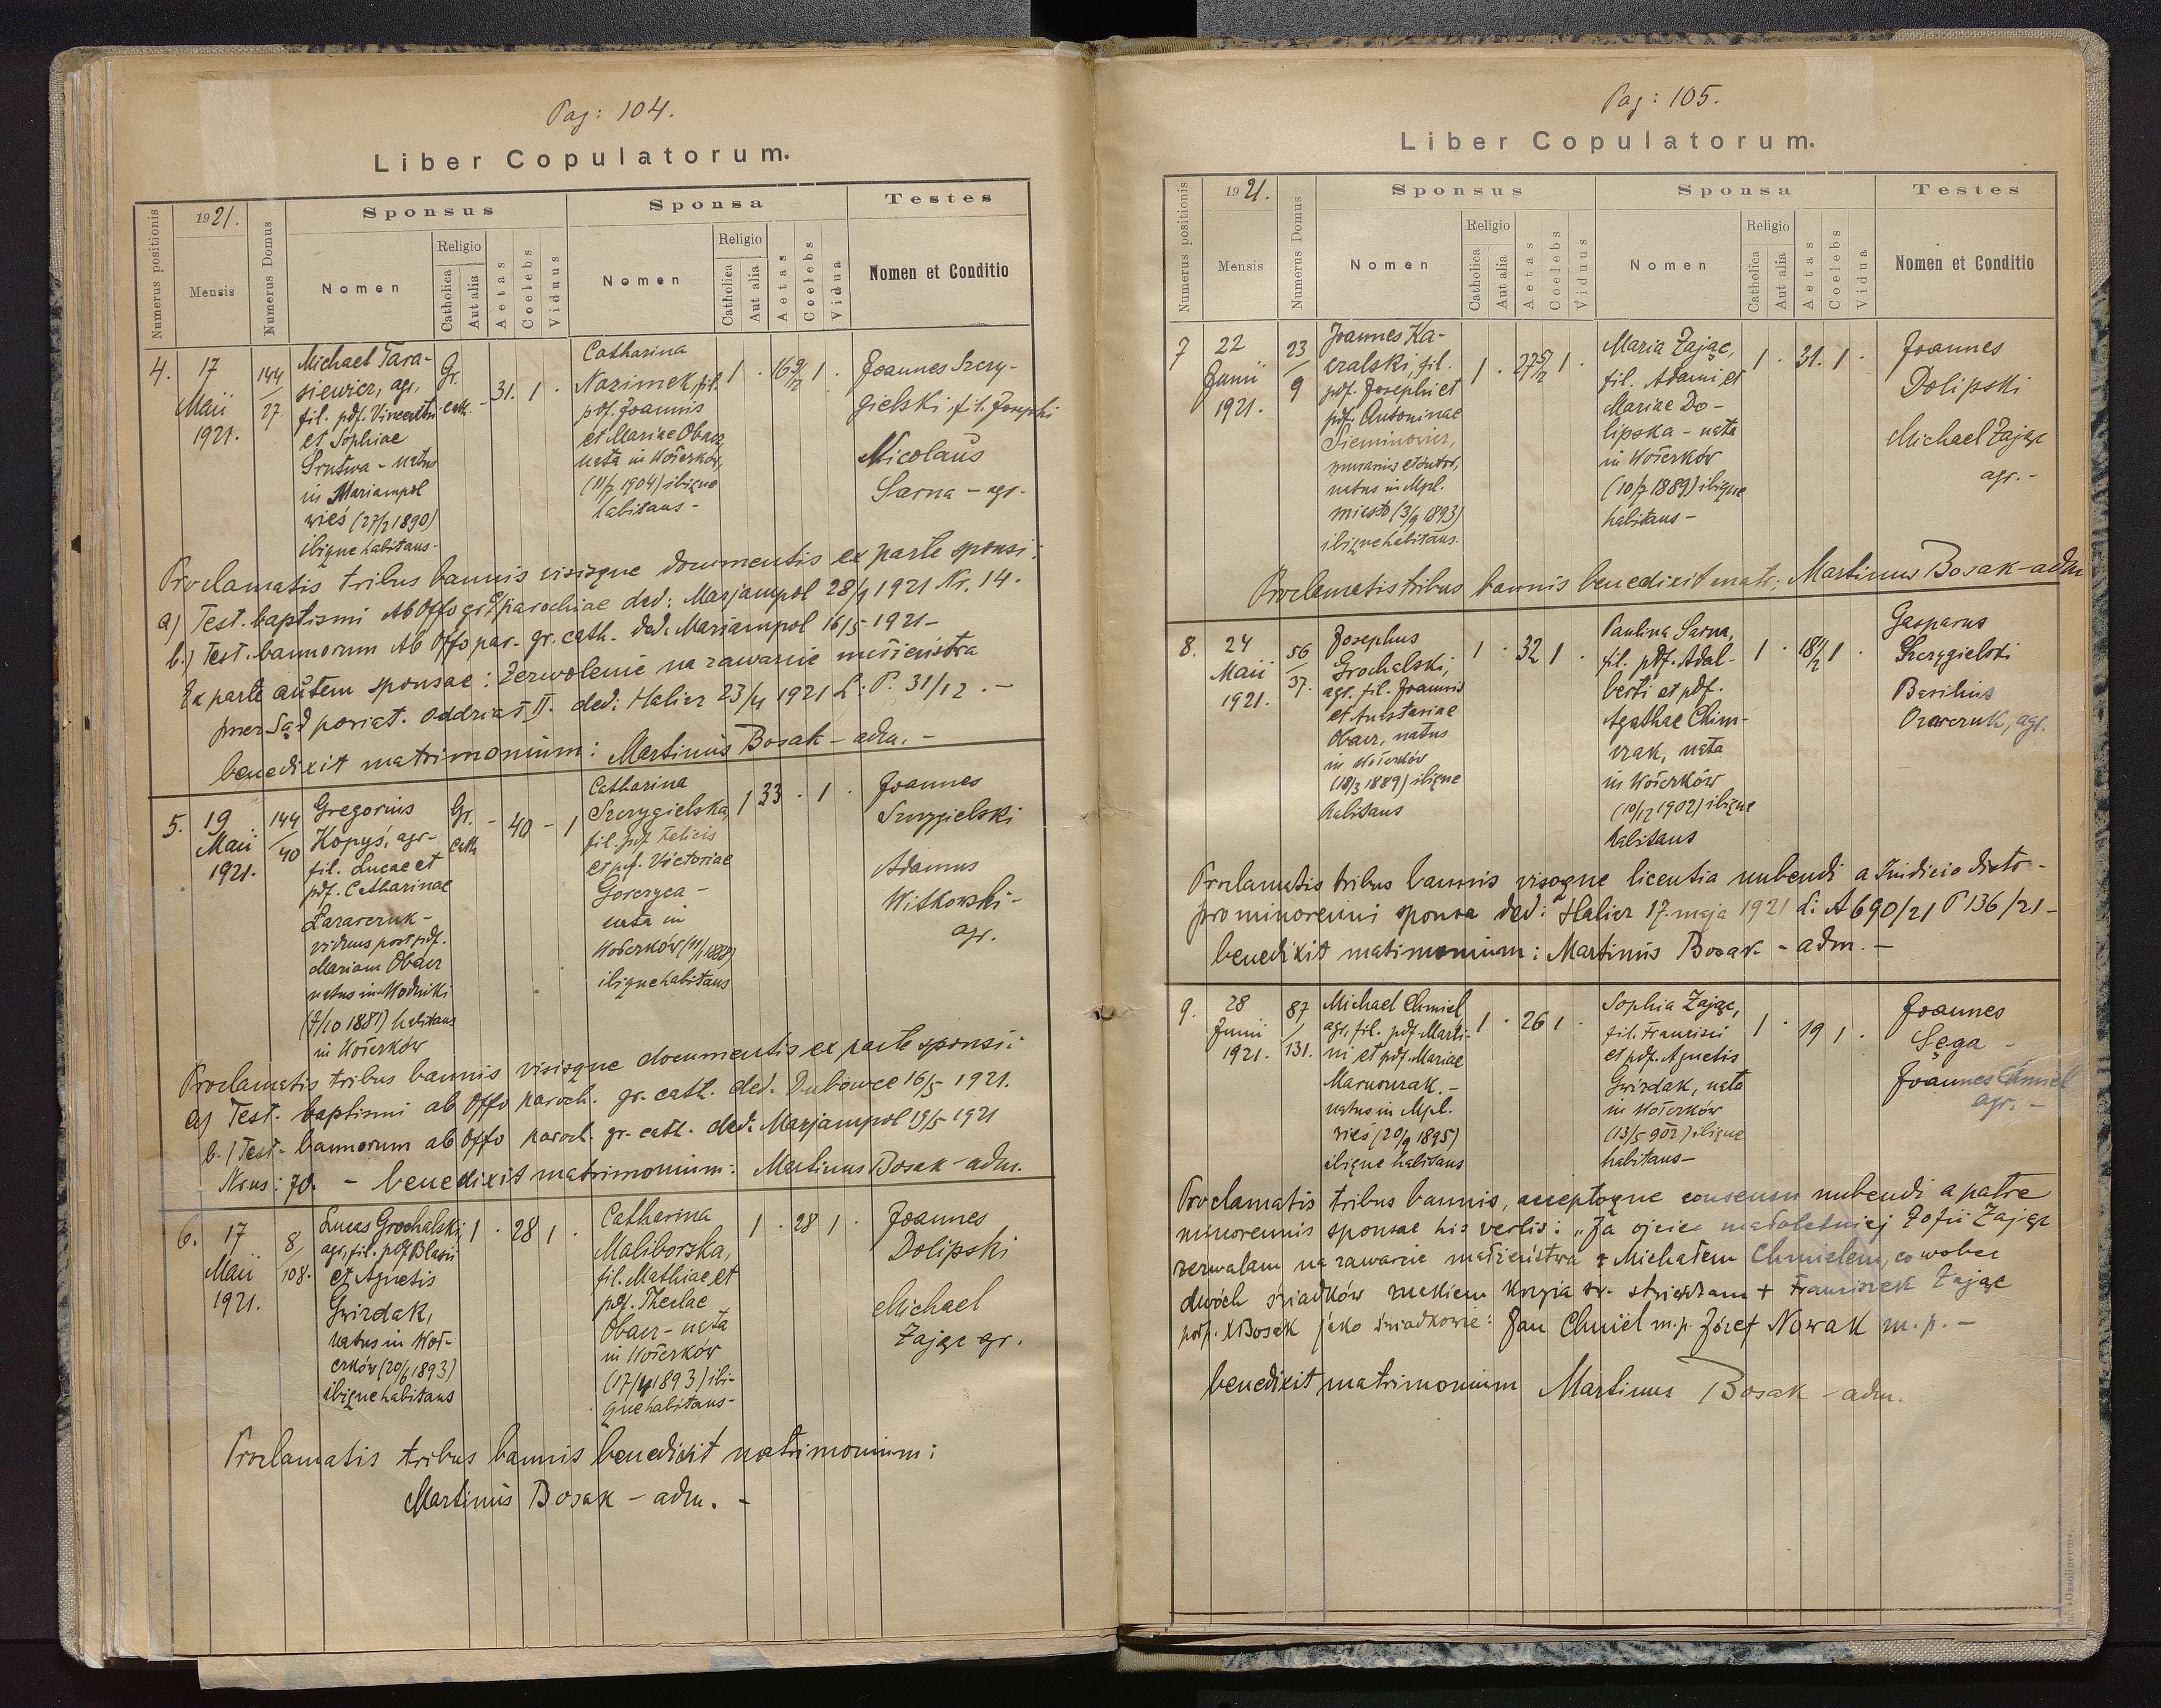 Pag: 104.
Liber Copulatorum.
Numerus positionis
1921.
Mensis
Numerus Domus
Sponsus
Nomen
Religio
Catholica
Aut alia
Aetas
Coelebs
Viduus
Sponsa
Nomen
Religio
Catholica
Aut alia
Aetas
Coelebs
Vidua
Testes
Nomen et Conditio
4.
17
Maii
1921.
144
27.
Michael Tara-
siewicz, agr,
fil. pdf. Vincentii
et Sophiae
Srutwa - natus
in Mariampol
wieś (27/2 1890)
ibique habitans-
Gr.
cath.
-
31. 1 .
Catharina
Nazimek, fil.
pdf. Joannis
et Mariae Obacz
nata in Wołczków,
(11/7 1904) ibique
habitans -
1 . 16 9/12 1 .
Joannes Szczy-
gielski fil. Josephi
Nicolaus
Sarna - agr.
Proclamatis tribus bannis visisque documentis ex parte sponsi:
a) Test. baptismi ab Offo gr. parochiae dd: Marjampol 28/4 1921 Nr. 14.
b.) Test. bannorum ab Offo par. gr. cath. dd: Marjampol 16/5 1921 -
Ex parte autem sponsae: Zezwolenie na zawarcie małżeństwa
przez Sąd powiat. oddział II. dd: Halicz 23/4 1921 L: P. 31/12 . -
benedixit matrimonium: Martinus Bosak - adm. -
5.
19
Maii
1921.
144
40
Gregorius
Kopyś, agr-
fil. Lucae et
pdf. Catharinae
Zazaczruk -
viduus post pdf.
Mariam Obacz
natus in Wodniki
(7/10 1881) habitans
in Wołczków
Gr.
cath
- 40 - 1
Catharina
Szczygielska,
fil. pdf Felicis
et pdf. Victoriae
Gorczyca -
nata in
Wołczków (11/1 1888)
ibique habitans
1 33 . 1 .
Joannes
Szczygielski
Adamus
Witkowski -
agr.
Proclamatis tribus bannis visisque documentis ex parte sponsi:
a) Test. baptismi ab Offo paroch. gr. cath. dd. Dubowce 16/5 1921.
b.) Test. bannorum ab Offo paroch. gr. cath. dd: Marjampol 19/5 1921
Nrus: 70. - benedixit matrimonium: Martinus Bosak - adm.
6.
17
Maii
1921.
8
108.
Lucas Grochalski,
agr, fil. pdf Blasii
et Agnetis
Gwizdak,
natus in Woł-
czków (20/6 1893)
ibique habitans
1 . 28 1 .
Catharina
Maliborska,
fil. Mathiae et
pdf. Theclae
Obacz - nata
in Wołczków
(17/4 1893) ibi-
que habitans-
1 . 28 1 .
Joannes
Dolipski
Michael
Zając gr.
Proclamatis tribus bannis benedixit matrimonium:
Martinus Bosak - adm. -
Pag: 105.
Liber Copulatorum.
Numerus positionis
1921.
Mensis
Numerus Domus
Sponsus
Nomen
Religio
Catholica
Aut alia
Aetas
Coelebs
Viduus
Sponsa
Nomen
Religio
Catholica
Aut alia
Aetas
Coelebs
Vidua
Testes
Nomen et Conditio
7
22
Junii
1921.
23
9
Joannes Ka-
czalski, fil.
pdf. Josephi et
pdf. Antoninae
Sieminowicz,
murarius et sutor,
natus in Mpl.
miasto (3/9 1893)
ibique habitans.
1 . 27 5/12 1 .
Maria Zając,
fil. Adami et
Mariae Do-
lipska - nata
in Wołczków
(10/7 1889) ibique
habitans -
1 . 31. 1 .
Joannes
Dolipski
Michael Zając
agr. -
Proclamatis tribus bannis benedixit matr: Martinus Bosak - adm
8.
24
Maii
1921.
56
37.
Josephus
Grochalski,
agr. fil. Joannis
et Anastasiae
Obacz, natus
in Wołczków
(18/3 1889) ibique
habitans
1 . 32 1 .
Paulina Sarna,
fil. pdf. Adal-
berti et pdf.
Agathae Chim-
czak, nata
in Wołczków
(10/12 1902) ibique
habitans
1 . 18 1/2 1 .
Gasparus
Szczygielski
Basilius
Ozarczuk, agr.
Proclamatis tribus bannis visaque licentia nubendi a Iudicio distr-
pro minorenni sponsa dd: Halicz 17. maja 1921 L: A 690/21 P 136/21 -
benedixit matimonium: Martinus Bosak - adm. -
9.
28
Junii
1921.
87
131.
Michael Chmiel,
agr, fil. pdf Marti-
ni et pdf. Mariae
Marusczak. -
natus in Mpl.
wieś (20/9 1895)
ibique habitans
1 . 26 1 .
Sophia Zając,
fil. Francisci
et pdf. Agnetis
Gwizdak, nata
in Wołczków
(13/5 902) ibique
habitans-
1 . 19 1 .
Joannes
Sęga -
Joannes Chmiel
agr. -
Proclamatis tribus bannis, acceptoque consensu nubendi a patre
minorennis sponsae his verbis: „Ja ojciec małoletniej Zofii Zając
zezwalam na zawarcie małżeństwa z Michałem Chmielem, co wobec
dwóch świadków znakiem krzyża św. stwierdzam + Franciszek Zając
podp. X Bosak jako świadkowie: Jan Chmiel m.p. Józef Nowak m.p. -
benedixit matrimonium Martinus Bosak - adm.